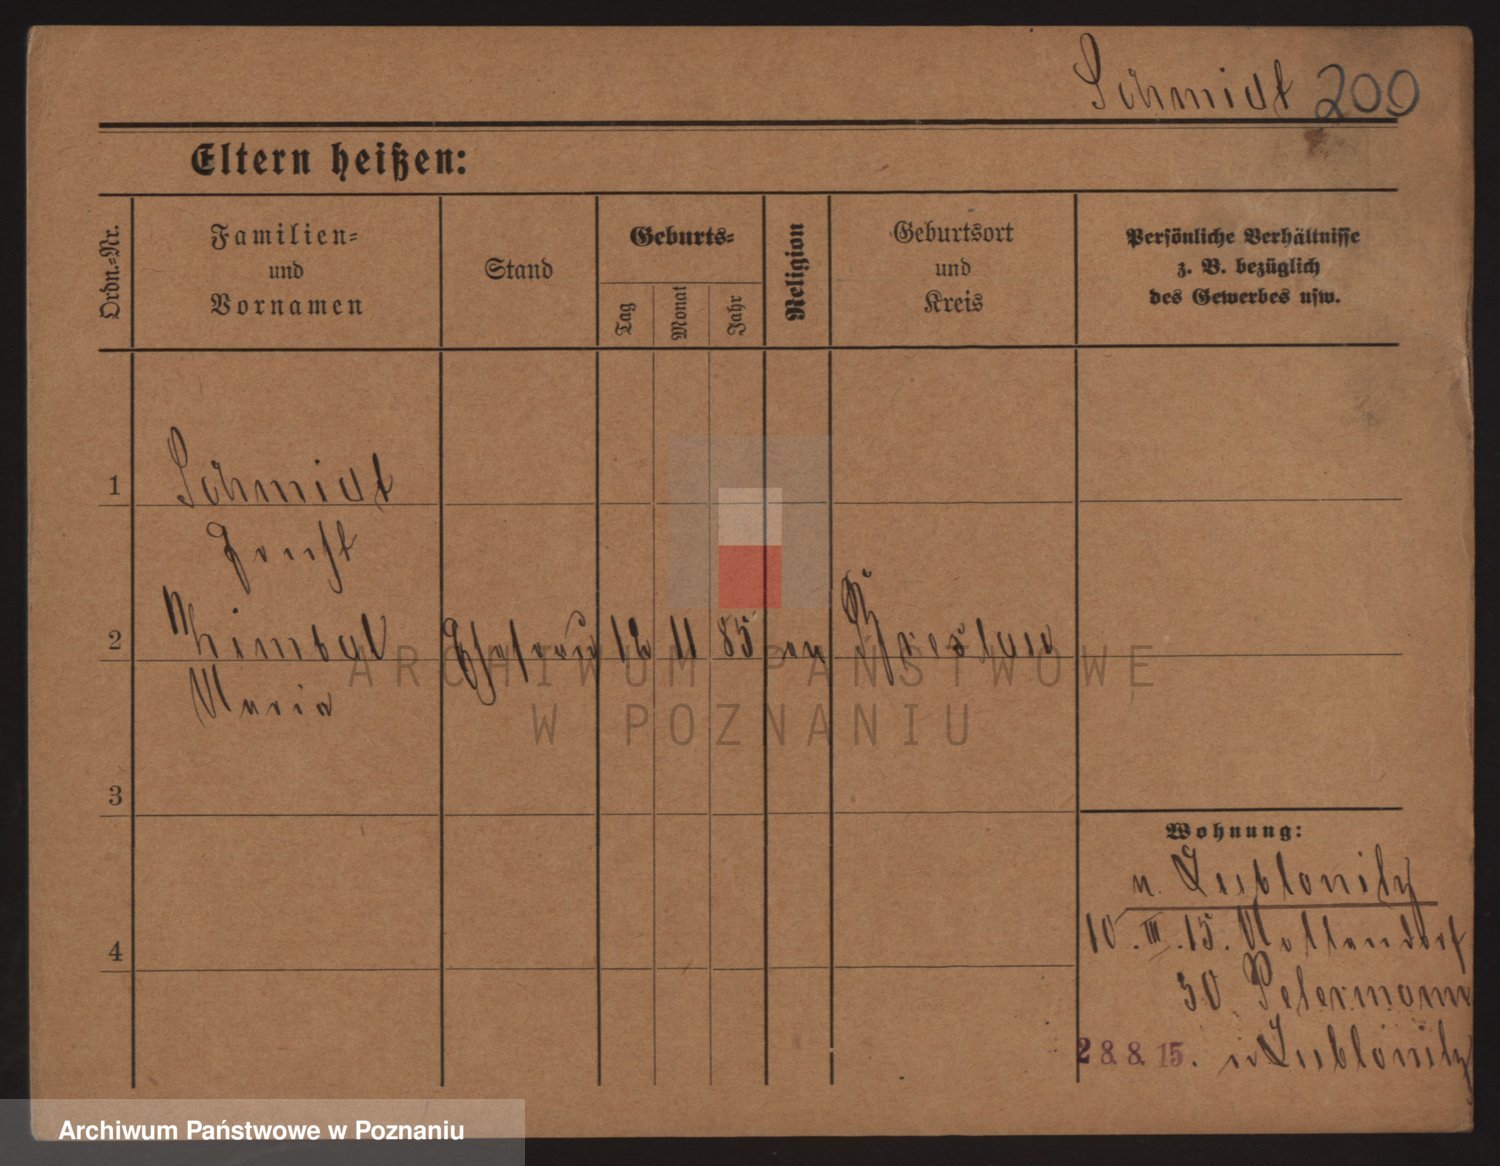 Schmidt 200
Eltern heißen:
Ordn.-Nr.
Familien-
und
Vornamen
Stand
Geburts-
Tag
Monat
Jahr
Religion
Geburtsort
und
Kreis
Persönliche Verhältnisse
z. B. bezüglich
des Gewerbes usw.
1 Schmidt
2 Ehefrau 12 11 85 ev Breslau
Maria
3
Wohnung:
n. Lublonitz
10. III. 15. Nollendorf
30 Petermann
4
28.8.15. n Lublonitz
ARCHIWUM PAŃSTWOWE
W POZNANIU
Archiwum Państwowe w Poznaniu